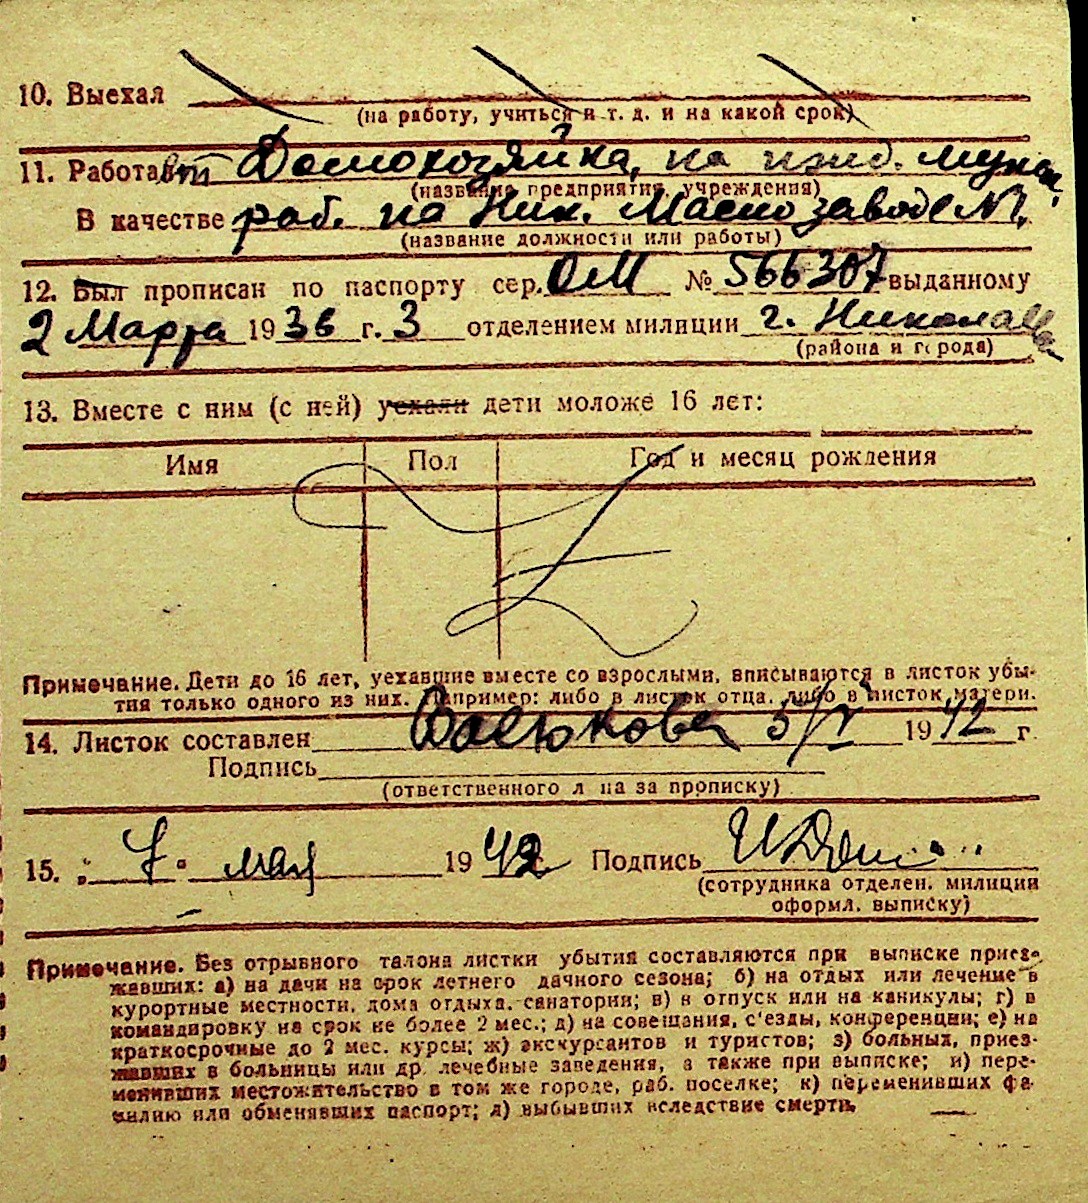 10. Выехал
(на работу, учиться и т. д. и на какой срок)
11. Работает Домохозяйка, на ижд. мужа
(название предприятия, учреждения)
В качестве раб. на Ник. Маслозаводе №1.
(название должности или работы)
12. Был прописан по паспорту сер. ОМ № 566307 выданному
2 Марта 1936 г. 3 отделением милиции г. Николаева
(района и города)
13. Вместе с ним (с ней) уехали дети моложе 16 лет:
Имя Пол Год и месяц рождения
Примечание. Дети до 16 лет, уехавшие вместе со взрослыми, вписываются в листок убы-
тия только одного из них. Например: либо в листок отца, либо в листок матери.
14. Листок составлен 5/V 1942 г.
Подпись
(ответственного лица за прописку)
15. „7“ мая 1942 г. Подпись
(сотрудника отделен. милиции
оформл. выписку)
Примечание. Без отрывного талона листки убытия составляются при выписке приез-
жавших: а) на дачи на срок летнего дачного сезона; б) на отдых или лечение в
курортные местности, дома отдыха, санатории; в) в отпуск или на каникулы; г) в
командировку на срок не более 2 мес.; д) на совещания, с'езды, конференции; е) на
краткосрочные до 2 мес. курсы; ж) экскурсантов и туристов; з) больных, приез-
жавших в больницы или др. лечебные заведения, а также при выписке; и) пере-
менивших местожительство в том же городе, раб. поселке; к) переменивших фа-
милию или обменявших паспорт; л) выбывших вследствие смерти.